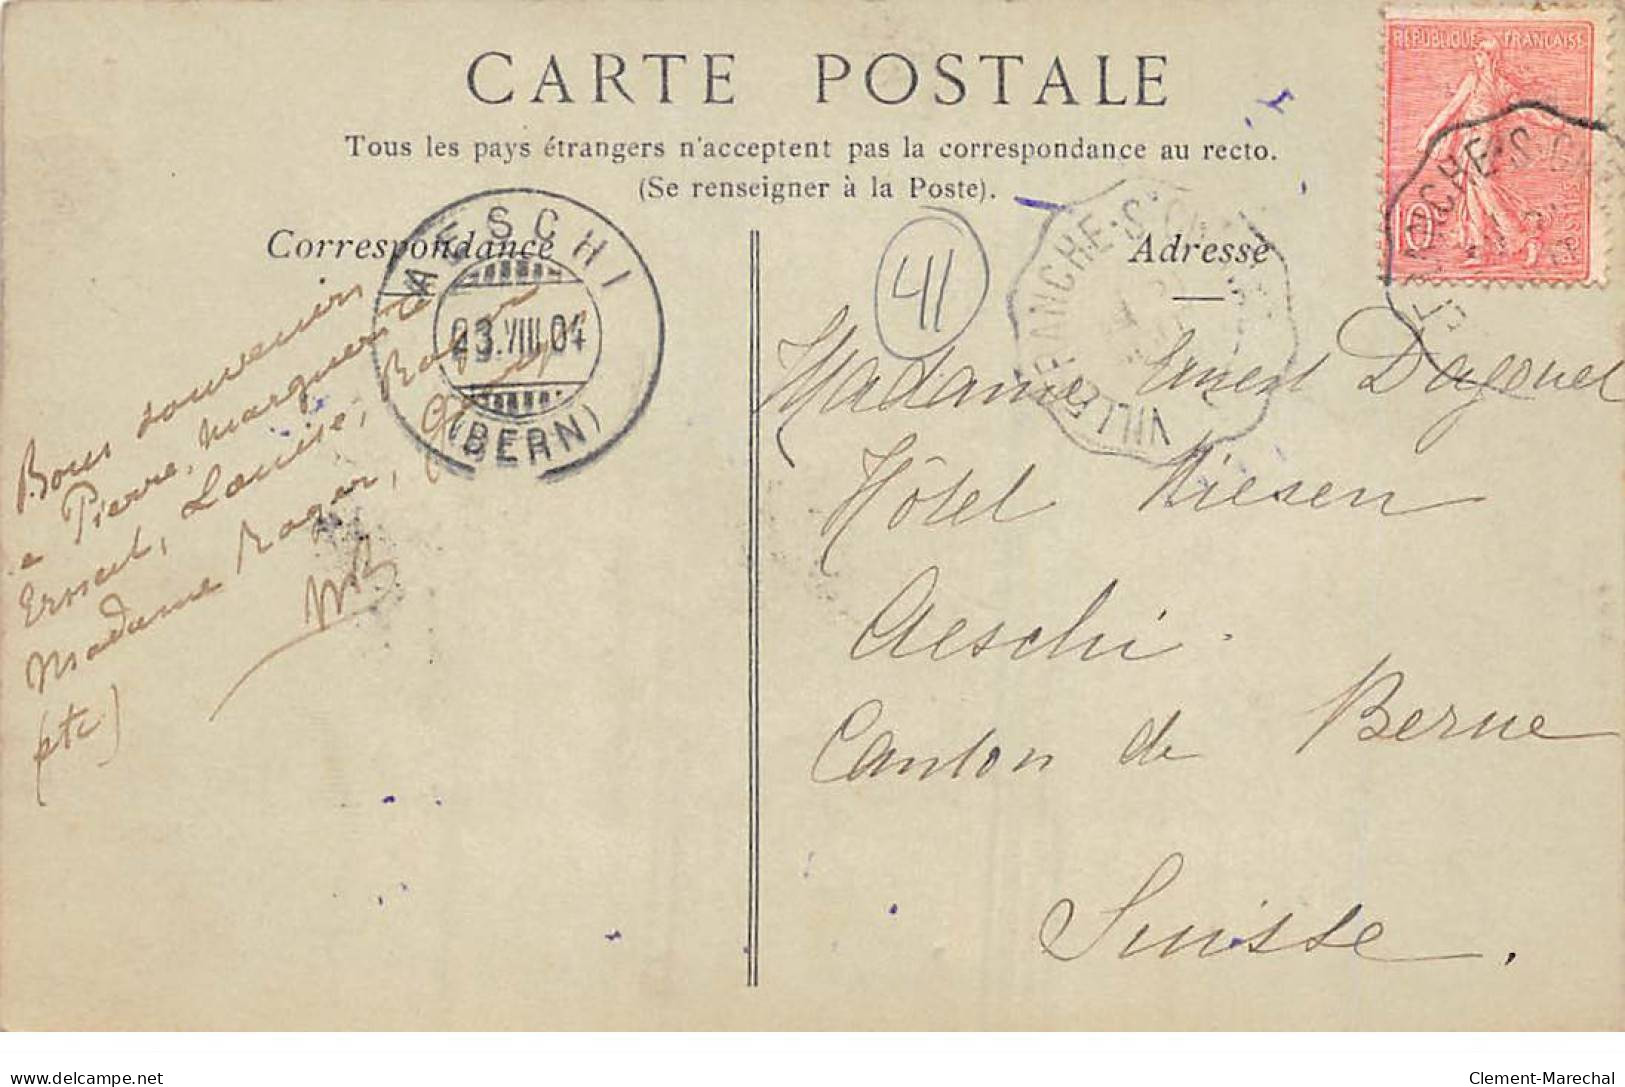 CARTE POSTALE
Tous les pays étrangers n'acceptent pas la correspondance au recto.
(Se renseigner à la Poste).
Correspondance
Adresse
RÉPUBLIQUE FRANÇAISE
10
AESCHI
23.VIII.04
(BERN)
41
VILLEFRANCHE·S·
Bons souvenirs
a Pierre, Marguerite
Ernest, Louise, Roger
Madame Roger,
etc)
MB
Madame Ernest Dagouet
Hôtel Niesen
Aeschi.
Canton de Berne
Suisse.
delcampe.net
Clement-Marechal